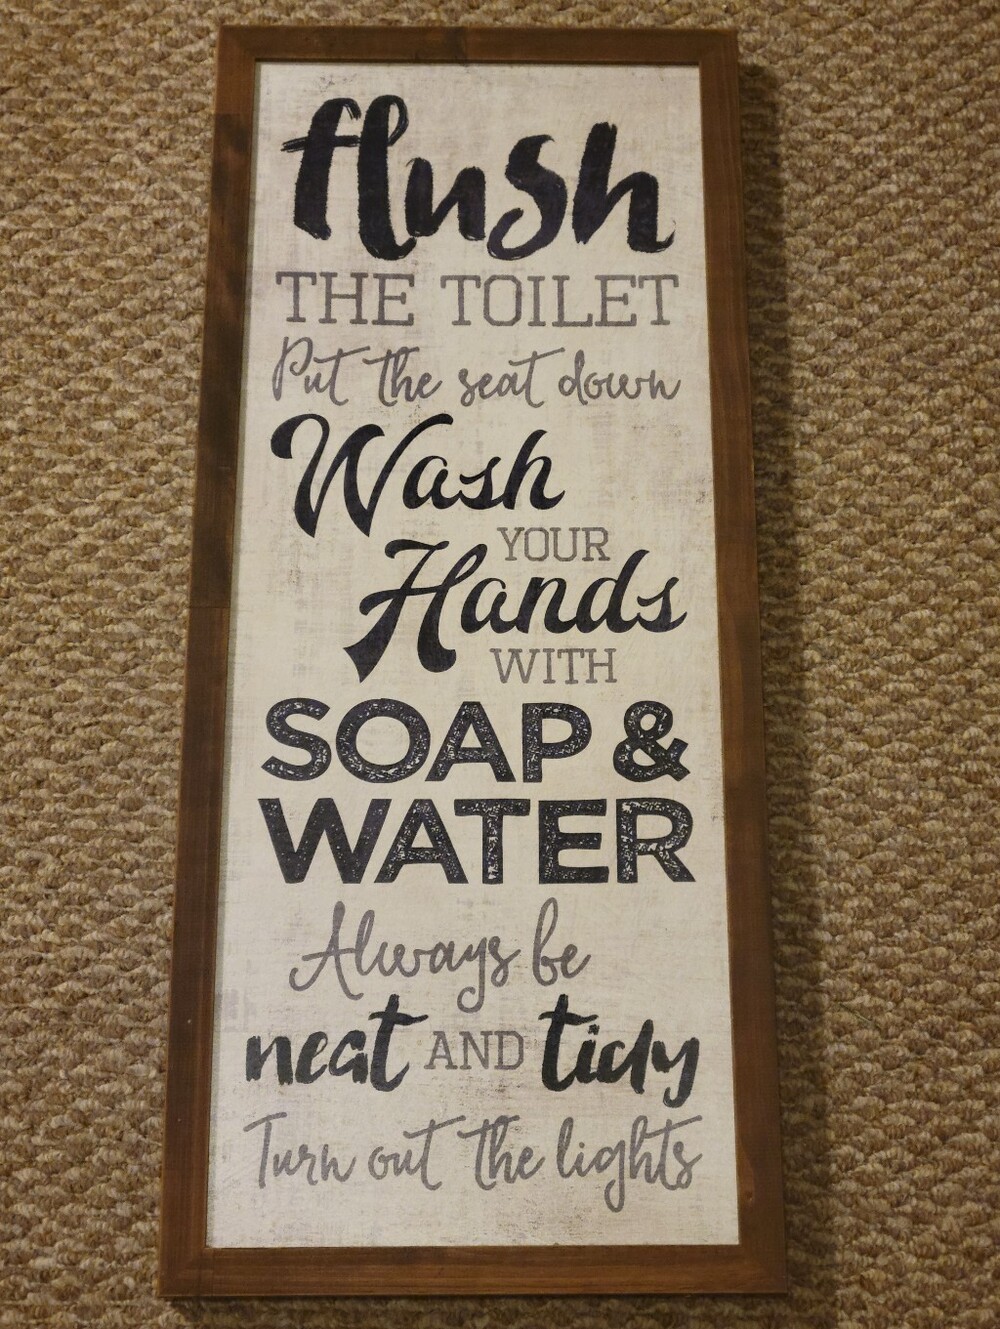 flush
THE TOILET
Put the seat down
Wash
YOUR
Hands
WITH
SOAP &
WATER
Always be
neat AND tidy
Turn out the lights